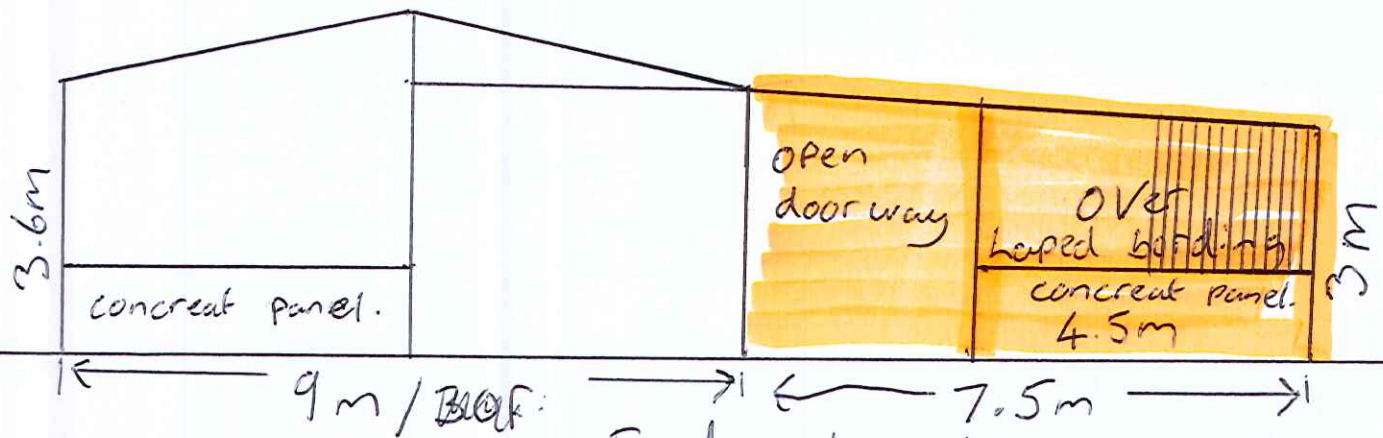 3.6m
concreat panel.
open
doorway
over
Laped bording
concreat panel.
4.5m
3m
9m /
7.5m